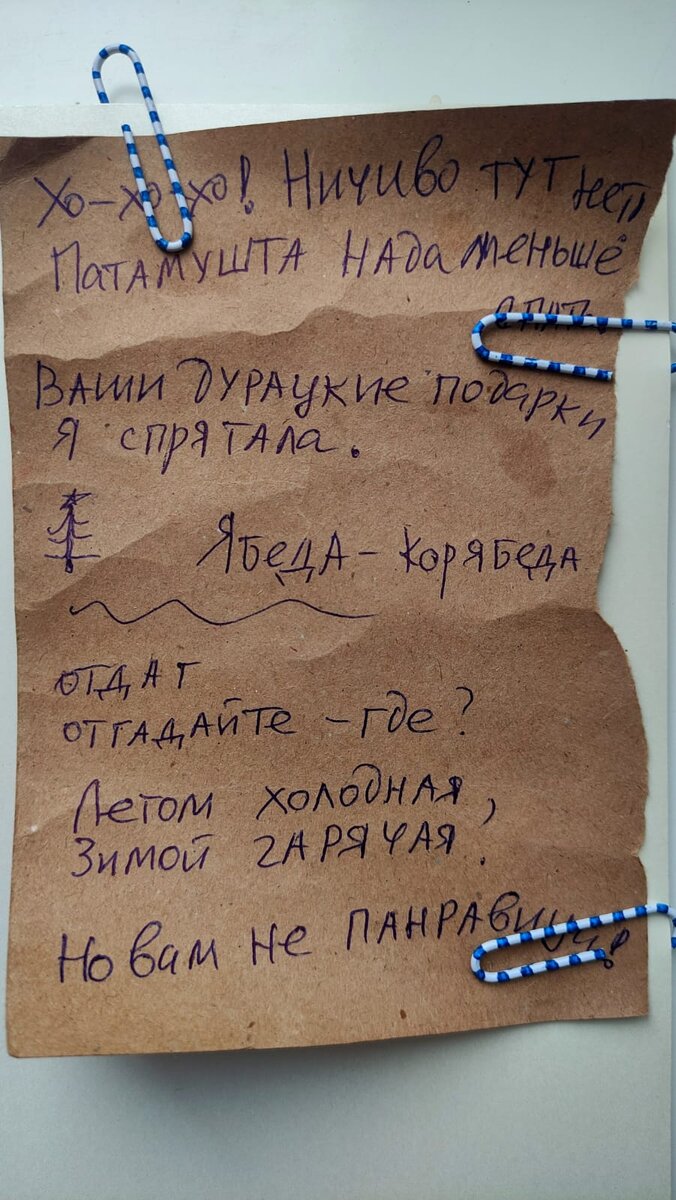 Хо-хо-хо! Ничиво тут нет
Патамушта нада меньше
спать
Ваши дурацкие подарки
я спрятала.
Ябеда-Корябеда
отдаг
отгадайте - где?
Летом холодная,
Зимой гарячая.
Но вам не панравицца!